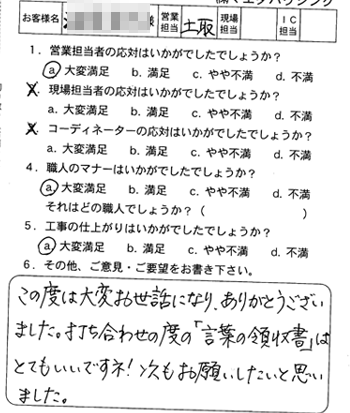 お客様名 様 営業担当 土取 現場担当 IC担当
1．営業担当者の応対はいかがでしたでしょうか？
a. 大変満足 b. 満足 c. やや不満 d. 不満
現場担当者の応対はいかがでしたでしょうか？
a. 大変満足 b. 満足 c. やや不満 d. 不満
コーディネーターの応対はいかがでしたでしょうか？
a. 大変満足 b. 満足 c. やや不満 d. 不満
4．職人のマナーはいかがでしたでしょうか？
a. 大変満足 b. 満足 c. やや不満 d. 不満
それはどの職人でしょうか？（ ）
5．工事の仕上がりはいかがでしたでしょうか？
a. 大変満足 b. 満足 c. やや不満 d. 不満
6．その他、ご意見・ご要望をお書き下さい。
この度は大変お世話になり、ありがとうござい
ました。打ち合わせの度の「言葉の領収書」は
とてもいいですネ！次もお願いしたいと思い
ました。